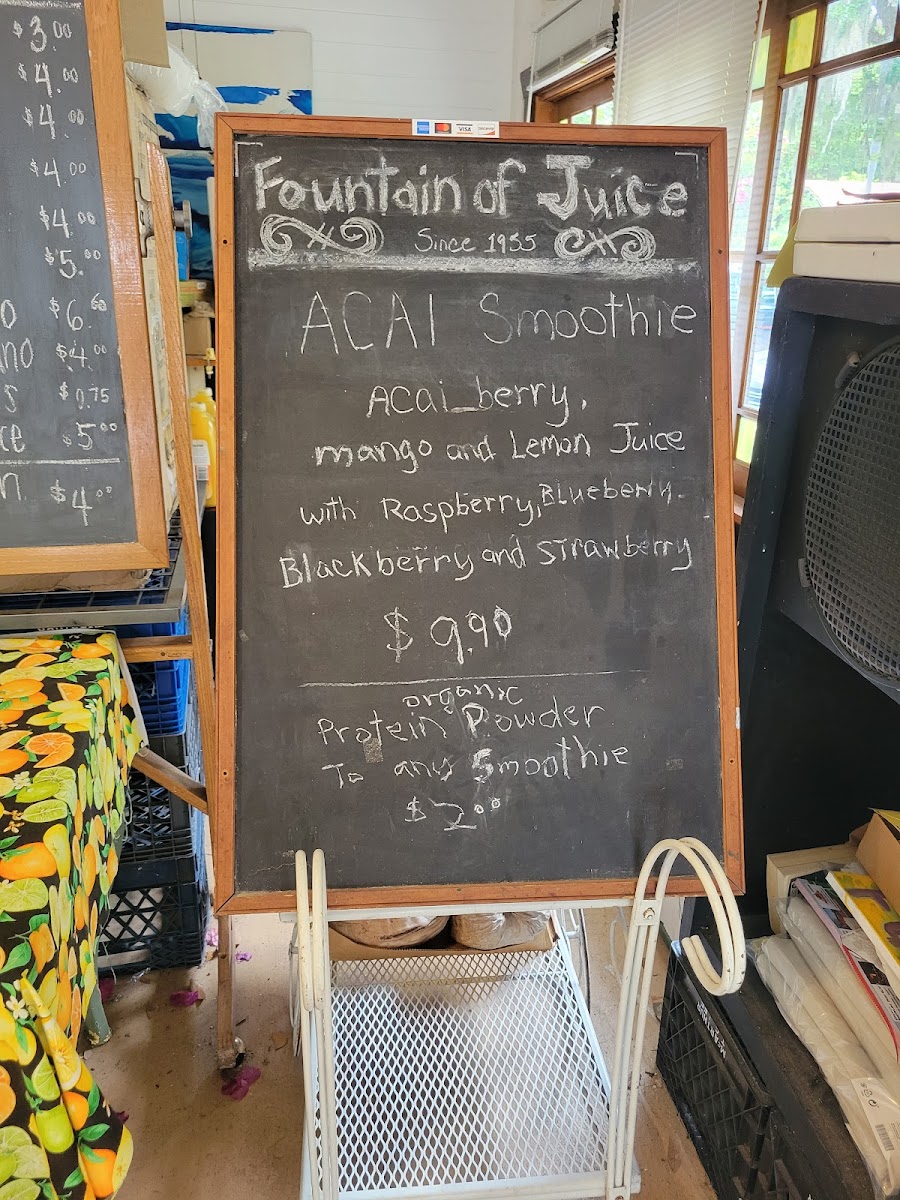 $3.00
$4.00
$4.00
$4.00
$4.00
$5.00
O $6.60
no $4.00
s $0.75
ce $5.00
n. $4.00
VISA
DISCOVER
Fountain of Juice
Since 1955
ACAI Smoothie
ACai_berry,
mango and Lemon Juice
with Raspberry, Blueberry.
Blackberry and strawberry
$9.90
organic
Protein Powder
To any Smoothie
$2.00